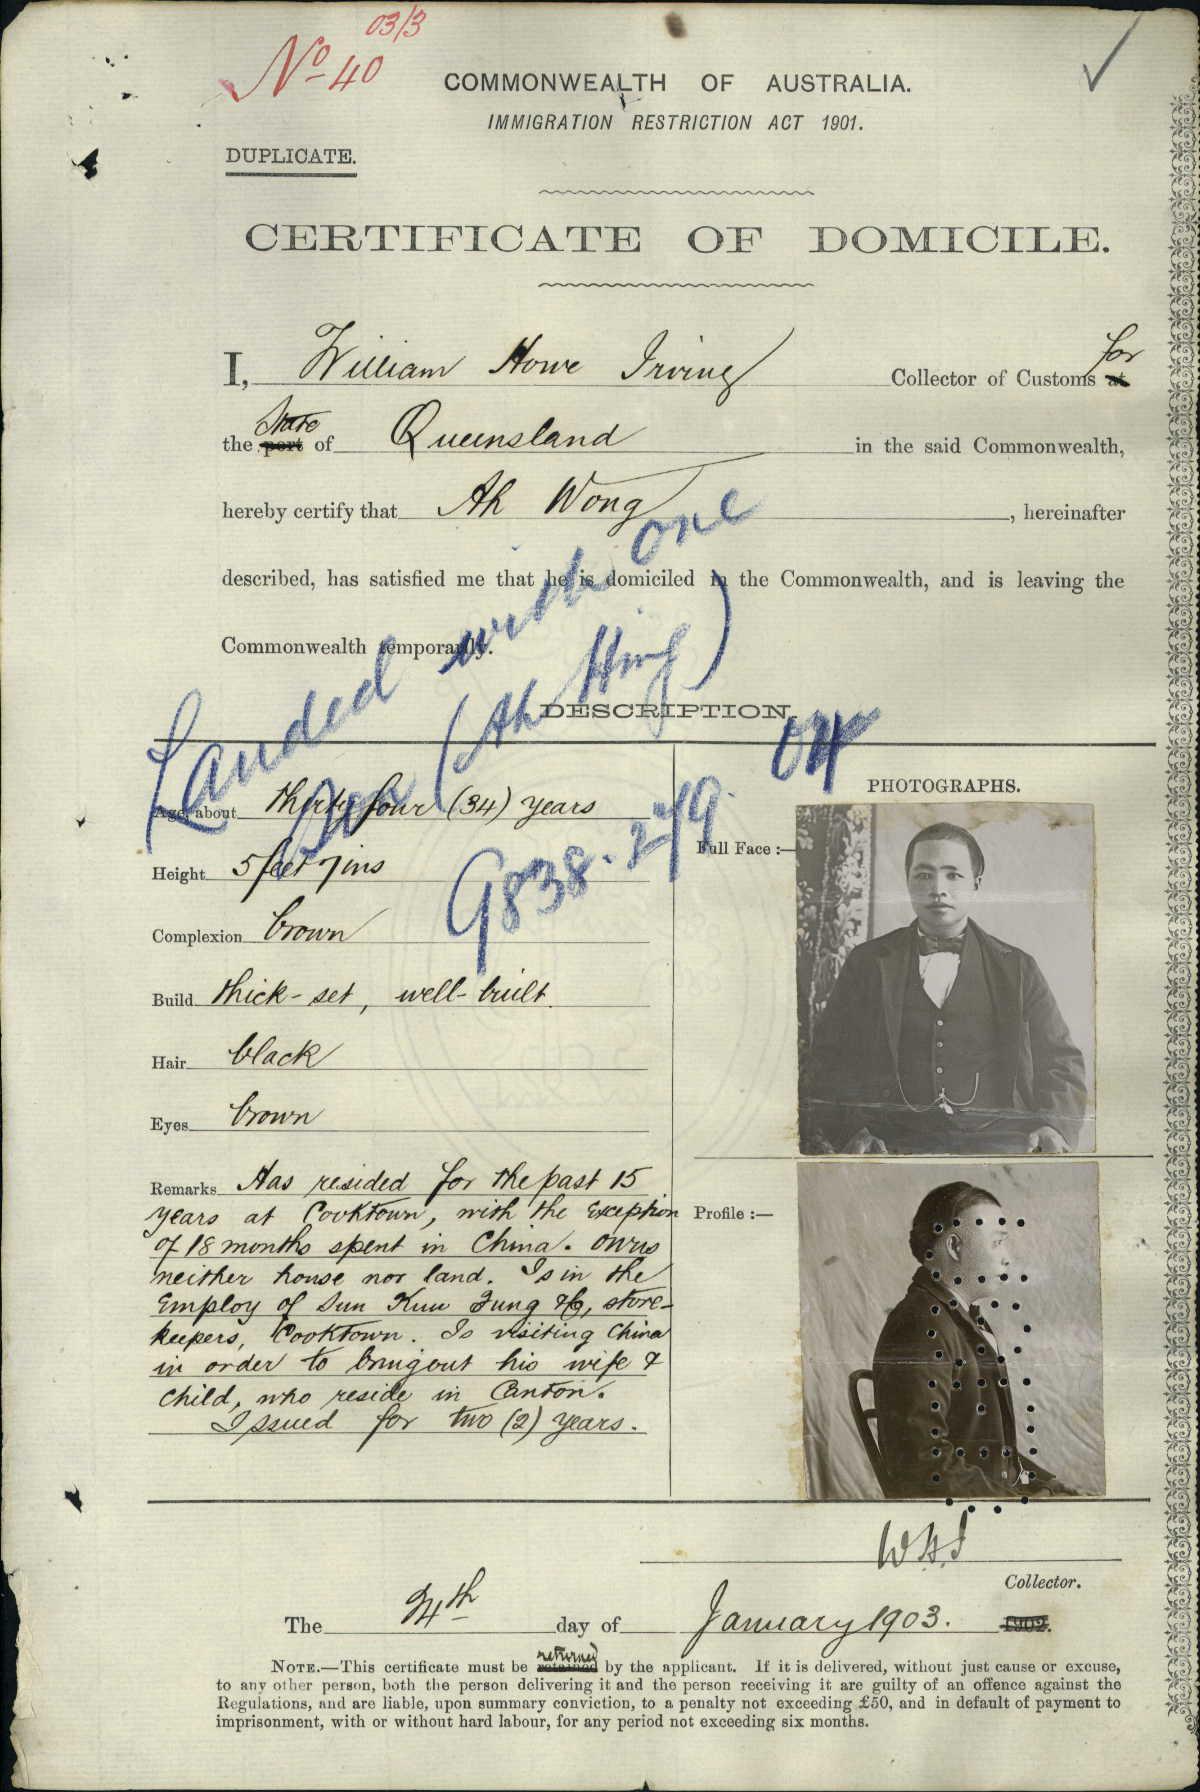 03/3
No 40
COMMONWEALTH OF AUSTRALIA.
IMMIGRATION RESTRICTION ACT 1901.
DUPLICATE.
CERTIFICATE OF DOMICILE.
I, William Howe Irving Collector of Customs at for
the port State of Queensland in the said Commonwealth,
hereby certify that Ah Wong, hereinafter
described, has satisfied me that he is domiciled in the Commonwealth, and is leaving the
Commonwealth temporarily.
Landed with one
Son (Ah Hing)
G838. 27/9. 04
DESCRIPTION.
Age, about thirty four (34) years
Height 5 feet 7 ins
Complexion brown
Build thick-set, well-built.
Hair black
Eyes brown
Remarks Has resided for the past 15
years at Cooktown, with the exception
of 18 months spent in China. Owns
neither house nor land. Is in the
employ of Sun Kum Fung & Co, store-
keepers, Cooktown. Is visiting China
in order to bring out his wife &
child, who reside in Canton.
Issued for two (2) years.
PHOTOGRAPHS.
Full Face :—
Profile :—
W.H.I
Collector.
The 24th day of January 1903. 1902.
NOTE.—This certificate must be retained returned by the applicant. If it is delivered, without just cause or excuse,
to any other person, both the person delivering it and the person receiving it are guilty of an offence against the
Regulations, and are liable, upon summary conviction, to a penalty not exceeding £50, and in default of payment to
imprisonment, with or without hard labour, for any period not exceeding six months.